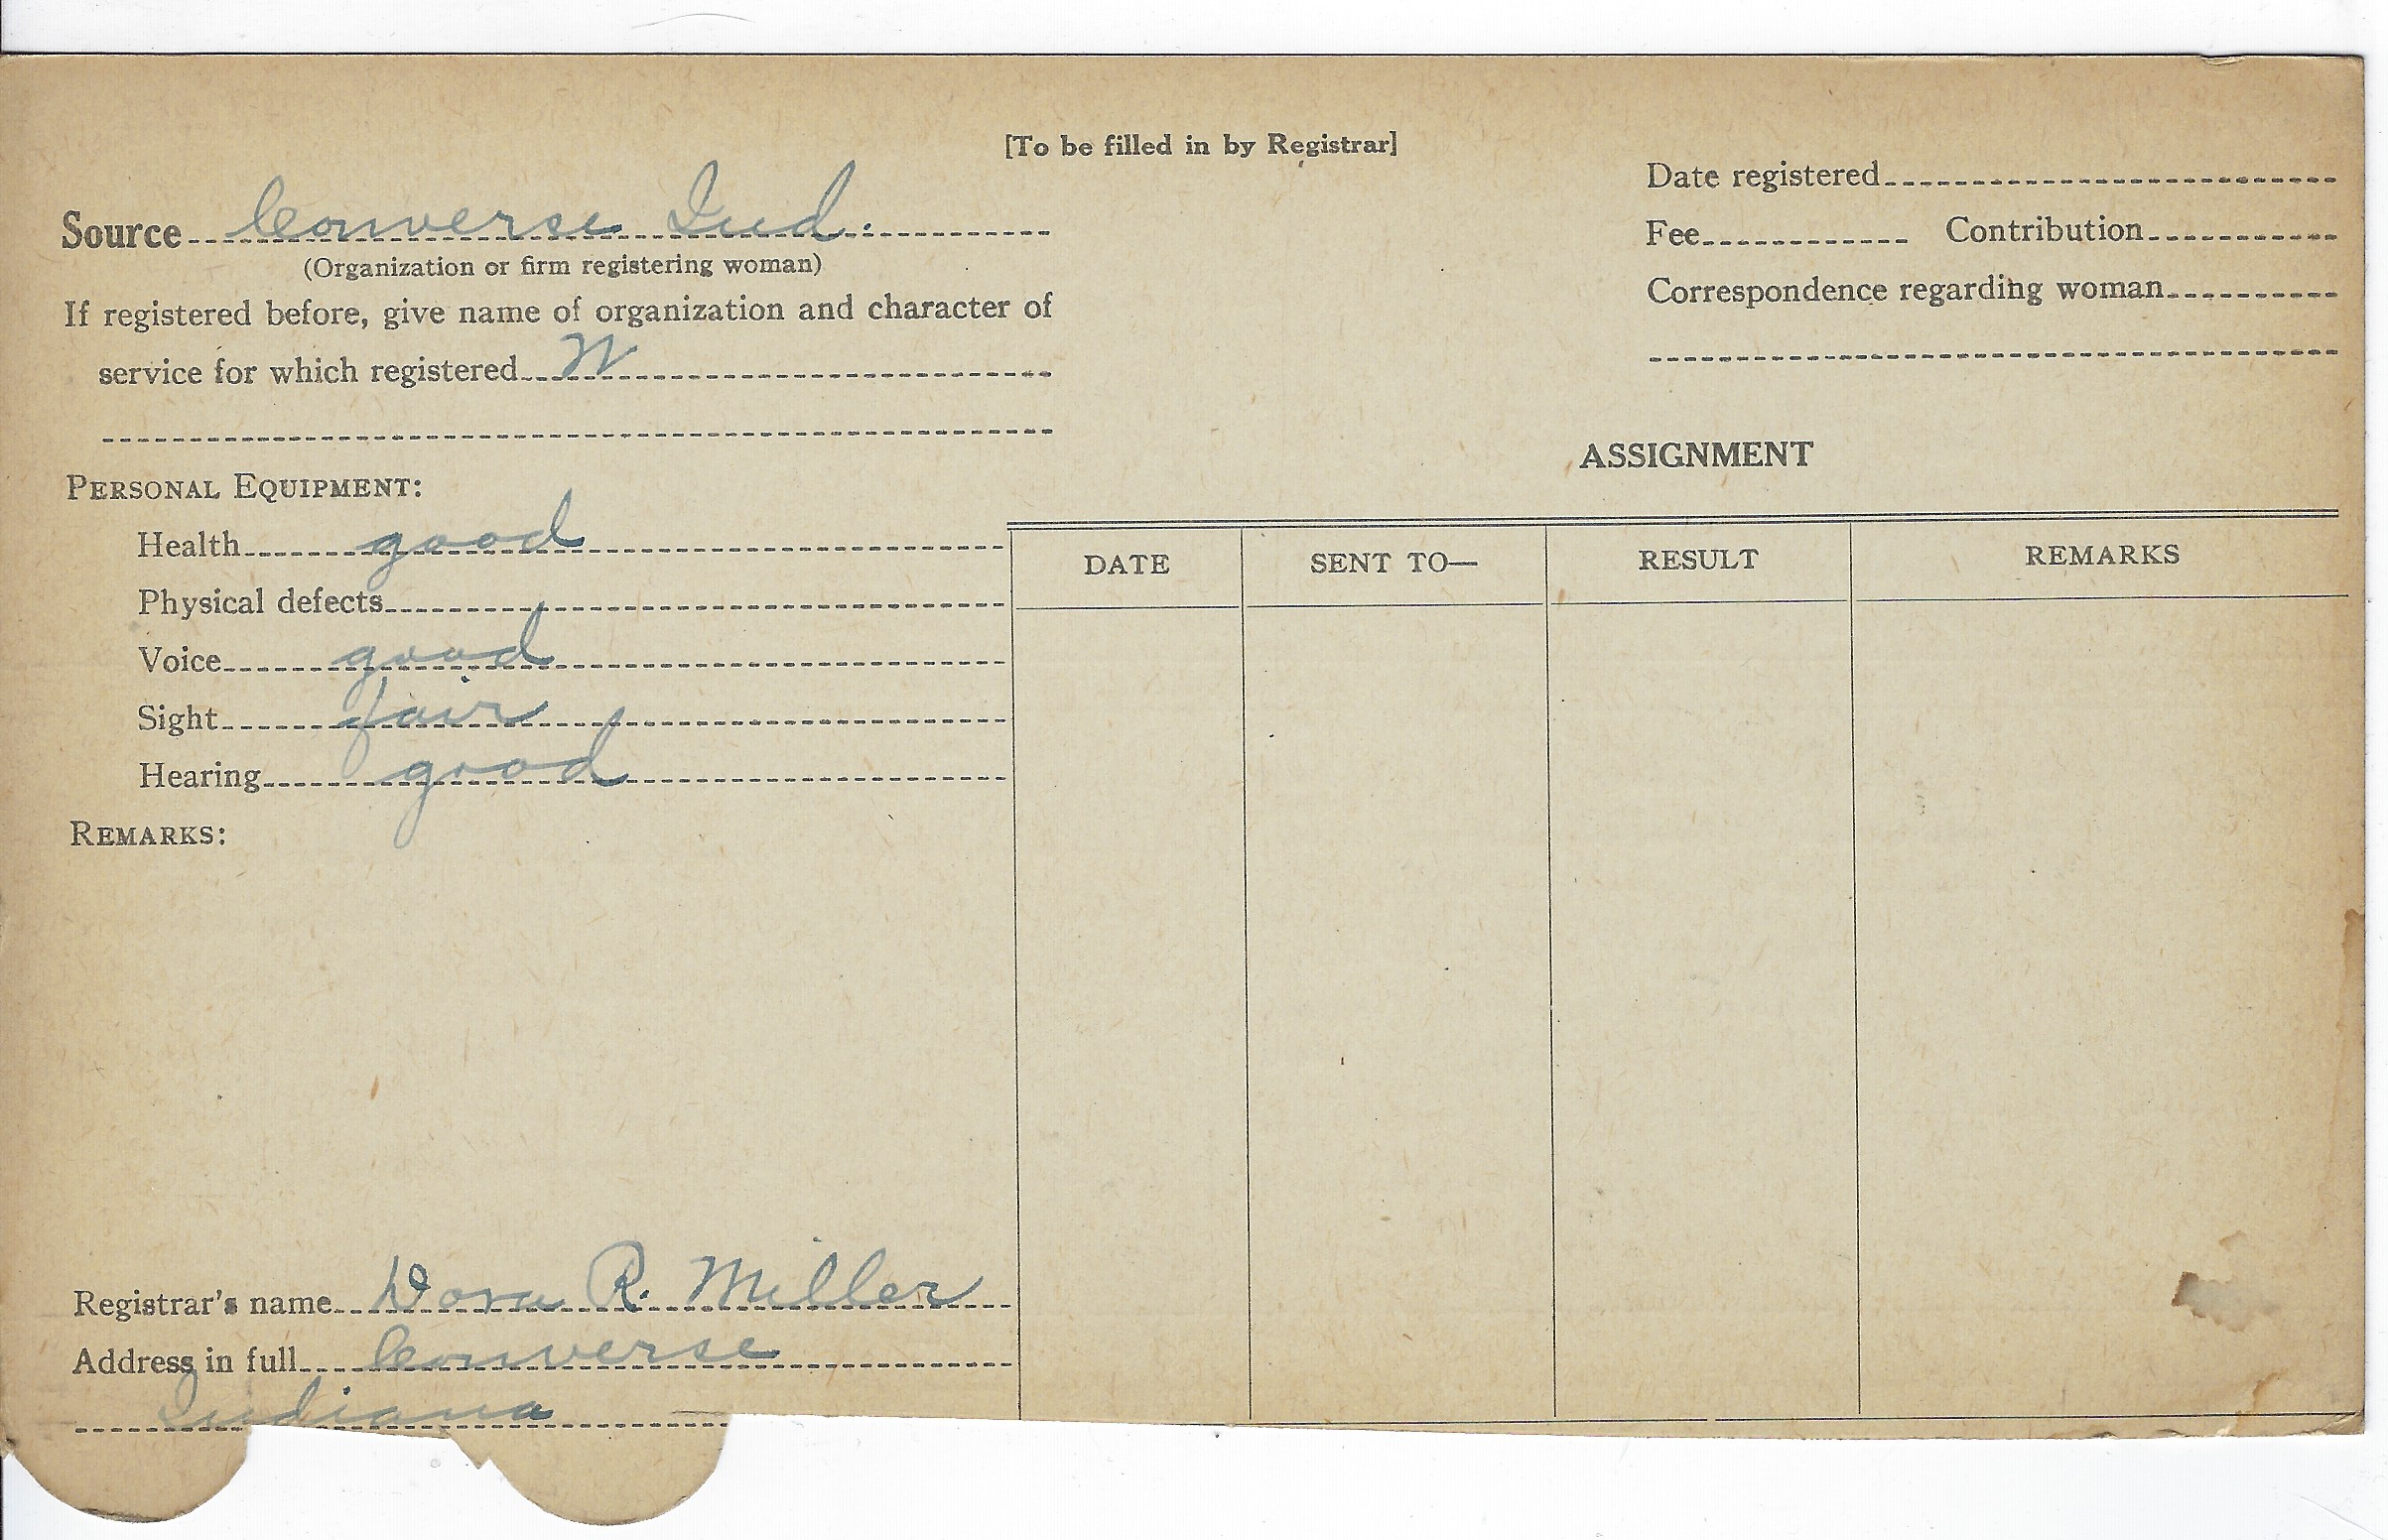 [To be filled in by Registrar]
Source Converse Ind.
(Organization or firm registering woman)
If registered before, give name of organization and character of
service for which registered W
Date registered
Fee Contribution
Correspondence regarding woman
PERSONAL EQUIPMENT:
Health good
Physical defects
Voice good
Sight fair
Hearing good
REMARKS:
ASSIGNMENT
DATE SENT TO— RESULT REMARKS
Registrar's name Dora R. Miller
Address in full Converse
Indiana